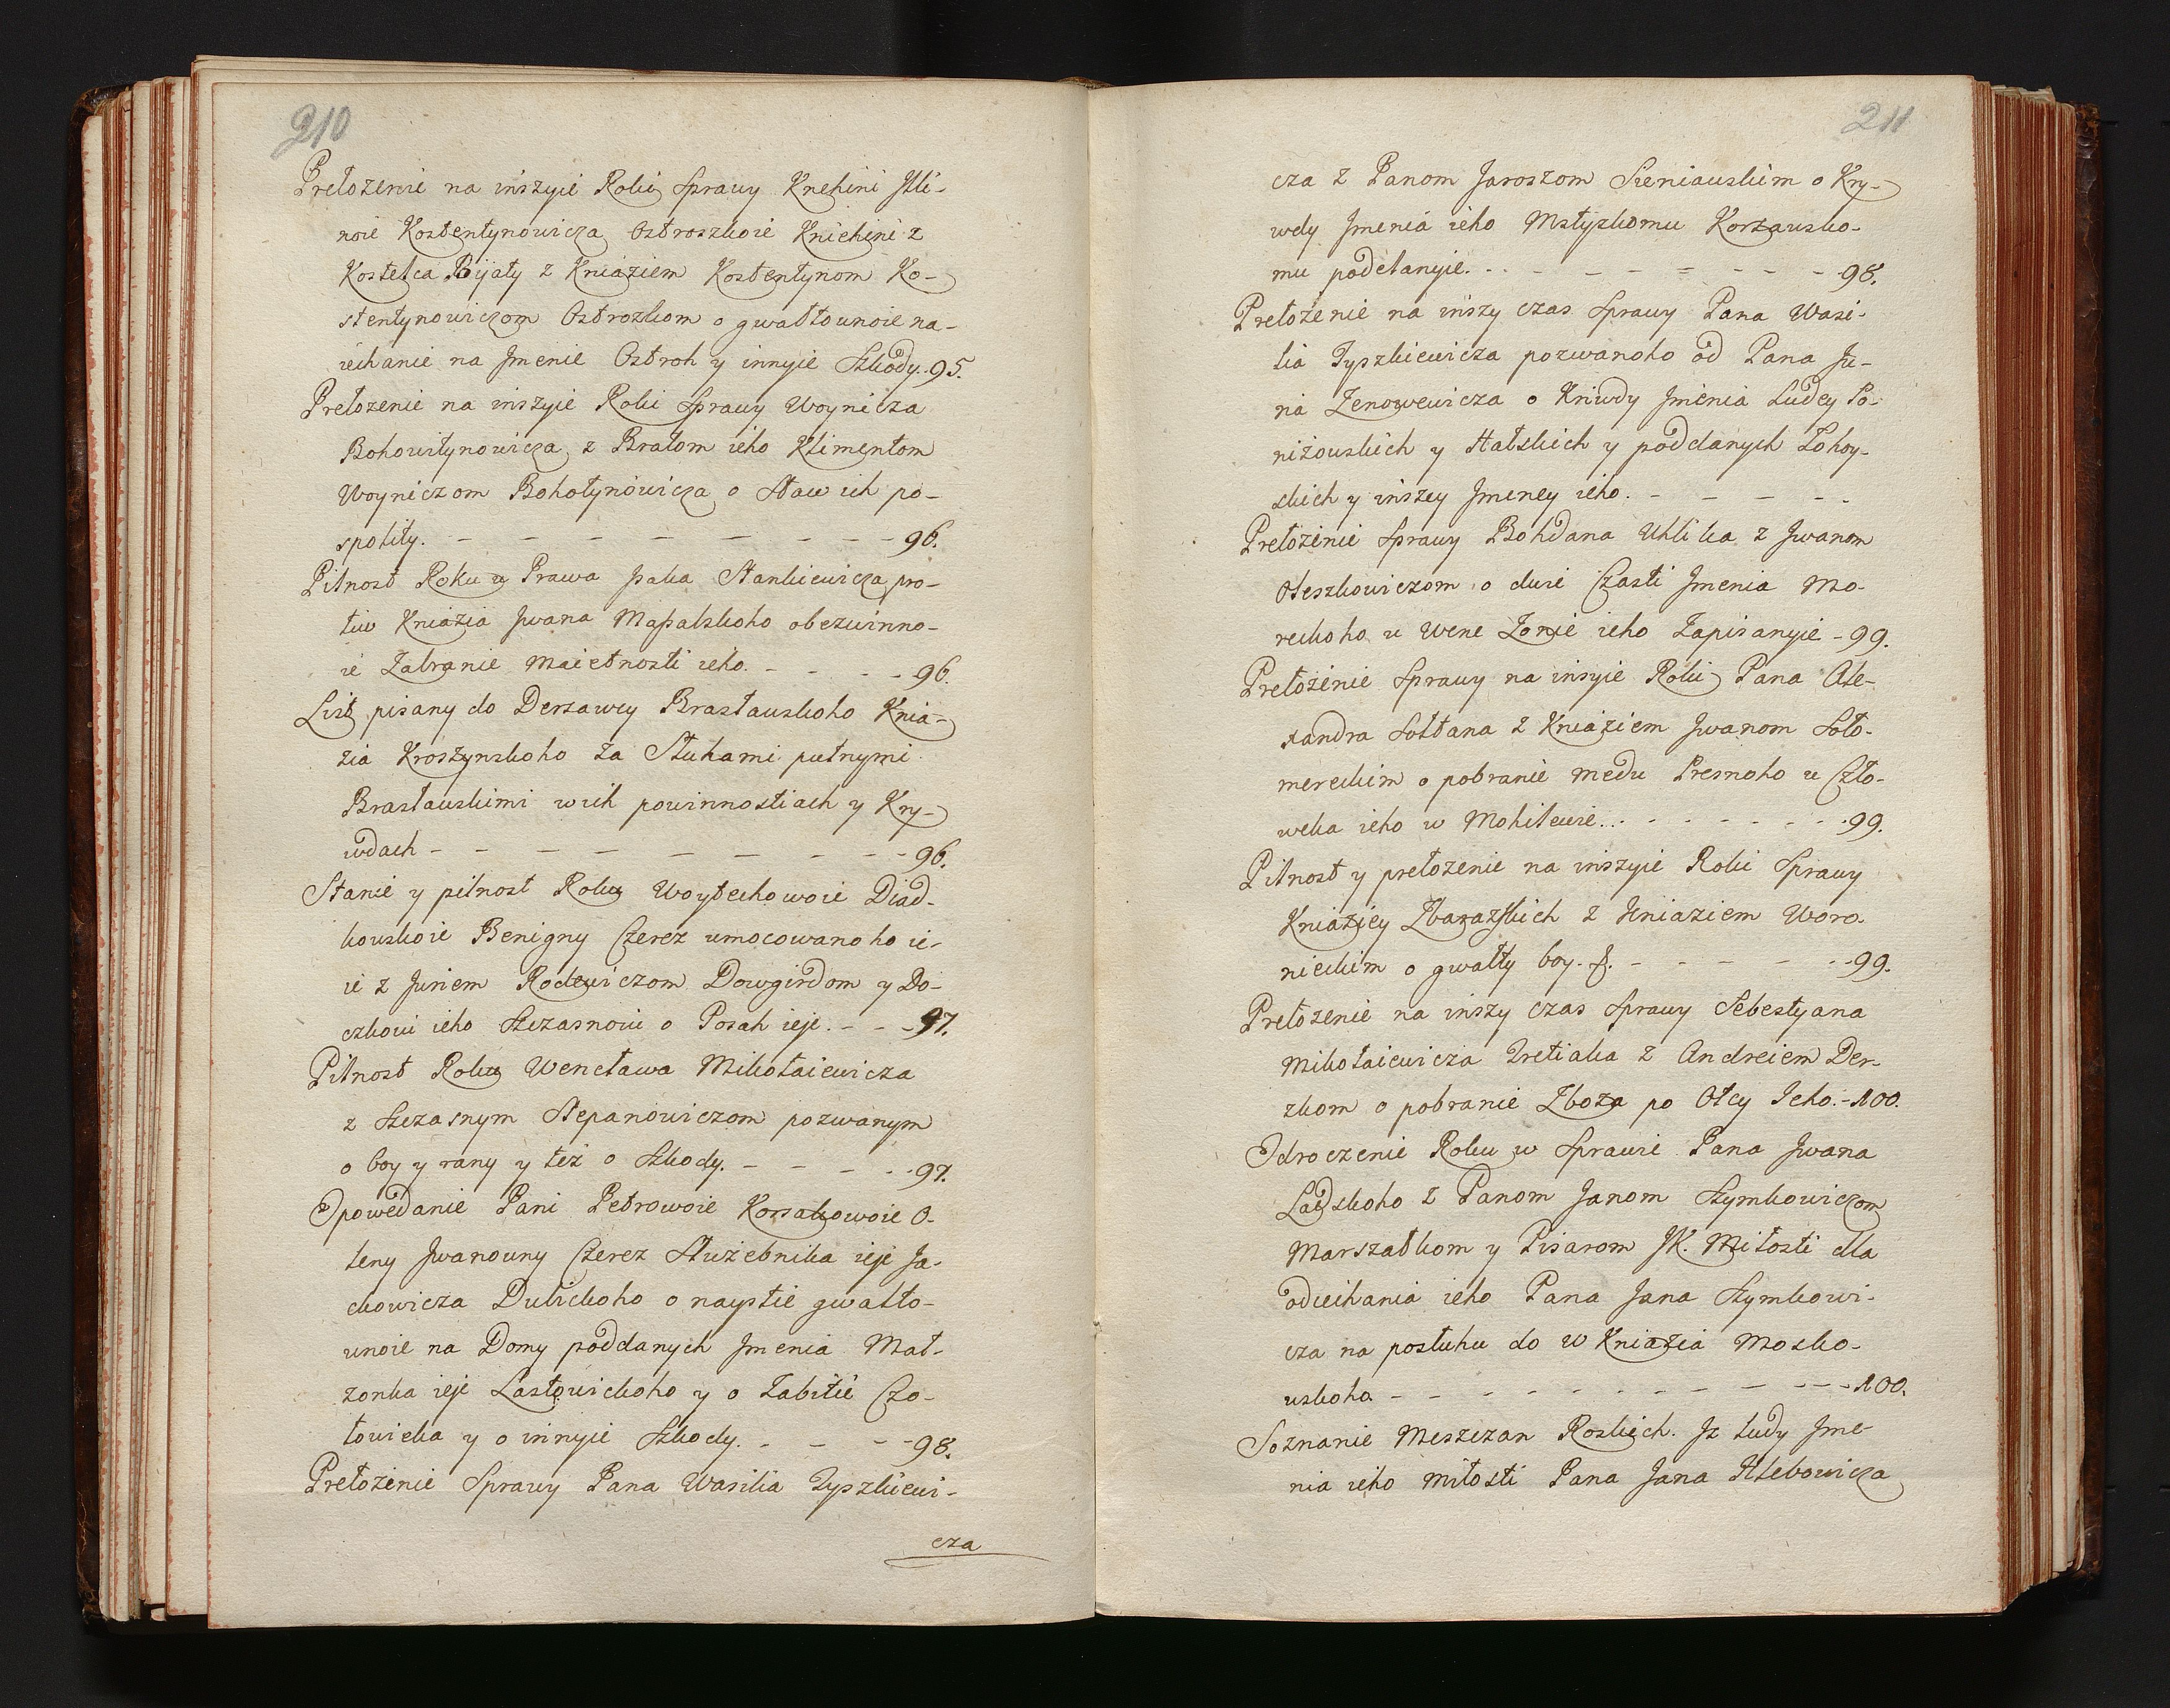 210
Prełozenie na inszyie Roki Sprawy Knehini Illi-
noie Kostentynowicza Ostroszkoie Kniehini z
Kostelca Bijaty z Kniaziem Kostentynom Ko-
stentynowiczom Ostrozkom o gwałtownoie na-
iechanie na Jmenie Ostroh y innyie Szkody. 95.
Prełozenie na inszyie Roki Sprawy Woynicza
Bohowitynowicza z Bratom ieho Klimentom
Woyniczom Bohotynowicza o Staw ich po-
spolity. - - - - - - - - 96.
Pilnost Roku y Prawa Jaka Stankiewicza pro-
tiw Kniazia Jwana Masalskoho obezwinno-
ie Zabranie maietnosti ieho. - - - - 96.
List pisany do Derzawcy Brasławskoho Knia-
zia Kroszynskoho za Słuhami putnymi
Brasławskimi w ich powinnostiach y Kry-
wdach - - - - - - - - - 96.
Stanie y pilnost Roku Woytechowoie Diad-
kowskoie Benigny Czerez umocowanoho ie-
ie z Juriem Rodewiczom Dowgirdom y Do-
czkoiu ieho Szczasnoiu o Posah ieje. - - - 97.
Pilnost Roku Wencława Mikołaiewicza
z Szczasnym Stepanowiczom pozwanym
o boy y rany y też o Szkody. - - - - - 97.
Opowedanie Pani Petrowoie Korsakowoie O-
leny Jwanowny Czerez Służebnika ieje Ja-
ckowicza Dulickoho o naystie gwałto-
wnoie na Domy poddanych Jmenia Mał-
zonka ieje Lastowickoho y o Zabitie Czo-
łowieka y o innyie Szkody. - - - - 98.
Prełozenie Sprawy Pana Wasilia Tyszkiewi-
cza
211
cza z Panom Jaroszom Sieniawskim o Kry-
wdy Jmenia ieho Mstyzkomu Korzawsko-
mu podełanyie. - - - - - - - - - 98.
Prełożenie na inszy czas Sprawy Pana Wasi-
lia Tyszkiewicza pozwanoho od Pana Ju-
ria Zenowewicza o Kriwdy Jmenia Ludey Po-
niżowskich y Hałskich y poddanych Łohoy-
skich y inszey Jmeney ieho. - - - - -
Prełożenie Sprawy Bohdana Uhlika z Jwanom
Oleszkowiczom o dwie Czasti Jmenia Mo-
reckoho u Wene Żonie ieho Zapisanyie - 99.
Prełożenie Sprawy na insyie Roki Pana Ale-
xandra Sołtana z Kniaziem Jwanom Soło-
mereckim o pobranie medu Presnoho u Czło-
weka ieho w Mohilewie... - - - - - - 99.
Pilnost y prełozenie na inszyie Roki Sprawy
Kniaziey Zbarazskich z Kniaziem Woro-
nieckim o gwałty boy. - - - - - - 99.
Prełożenie na inszy czas Sprawy Sebestyana
Mikołaiewicza Tretiaka z Andreiem Der-
zkom o pobranie Zboża po Otcy Jeho. - 100.
Odroczenie Roku w Sprawie Pana Jwana
Ladskoho z Panom Janom Szymkowiczom
Marszałkom y Pisarom JK. Miłosti dla
odiechania ieho Pana Jana Szymkowi-
cza na posłuhu do W Kniazia Mosko-
wskoho. - - - - - - - - - - - 100.
Soznanie Meszczan Roskich. Jz Ludy Jme-
nia ieho Miłosti Pana Jana Hlebowicza